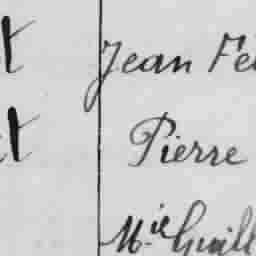 t Jean Fé
t Pierre
M.ie Guill